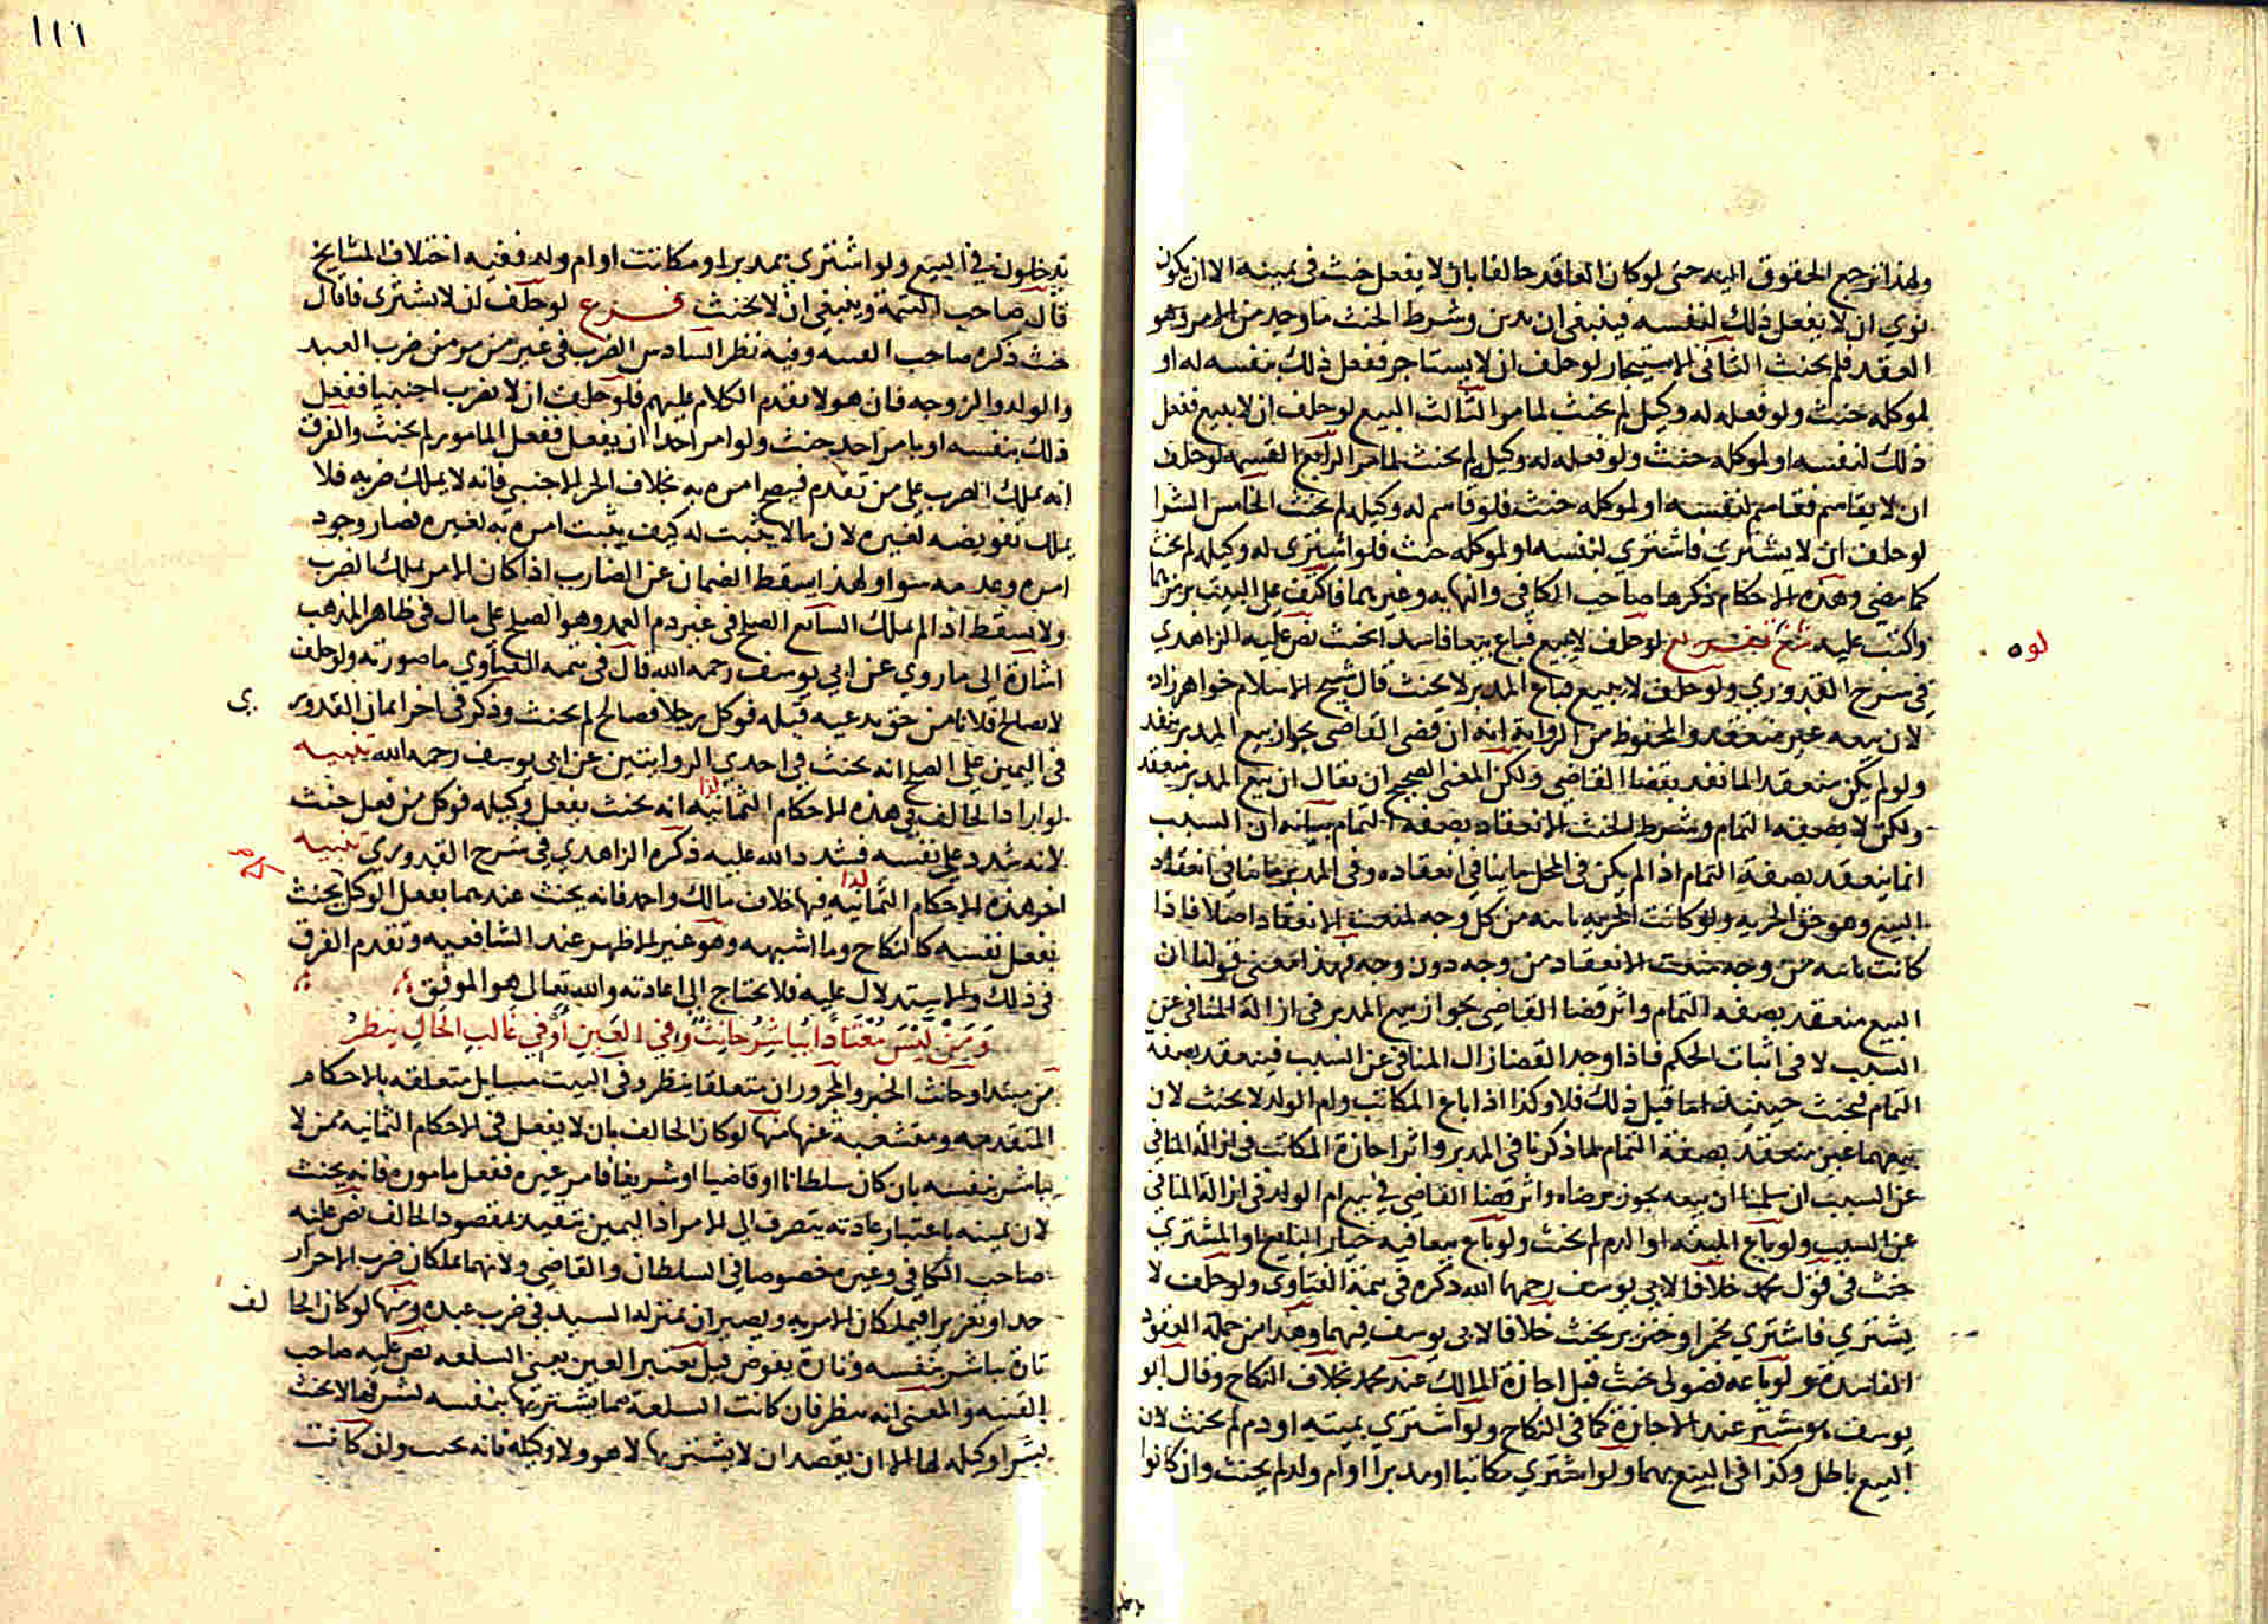 ولهذا ترجع الحقوق اليه حتى لو كان العاقد حالفا بان لا يفعل حنث في يمينه الا ان يكون
نوى ان لا يفعل ذلك لنفسه فينبغي ان يدين وشرط الحنث ما وجد من الامر وهو
العقد فلم يحنث الثاني الاستيجار لو حلف ان لا يستاجر ففعل ذلك بنفسه له او
لموكله حنث ولو فعله له وكيل لم يحنث لما مر الثالث البيع لو حلف ان لا يبيع ففعل
ذلك لنفسه او لموكله حنث ولو فعله له وكيل لم يحنث لما مر الرابع القسمة لو حلف
ان لا يقاسم فقاسم لنفسه او لموكله حنث فلو قاسم له وكيله لم يحنث الخامس الشرا
لو حلف ان لا يشتري فاشترى لنفسه او لموكله حنث فلو اشترى له وكيله لم يحنث
كما مضى وهذه الاحكام ذكرها صاحب الكافي والنهايه وغيرهما فاكتف على البيت برمزهما
واكتب عليه تفريع لو حلف لا يبيع فباع بيعا فاسدا يحنث نص عليه الزاهدي
في شرح القدوري ولو حلف لا يبيع فباع المدبر لا يحنث قال شيخ الاسلام خواهر زاده
لان بيعه غير منعقد والمحفوظ من الرواية انه ان قضى القاضي بجواز بيع المدبر ينفد
ولو لم يكن منعقدا لما نفد بقضا القاضي ولكن المعنى الصحيح ان يقال ان بيع المدبر منعقد
ولكن لا بصفة التمام وشرط الحنث الانعقاد بصفة التمام بيانه ان السبب
انما ينعقد بصفة التمام اذا لم يكن في المحل ما ينافي انعقاده وفي المدبر ما ينافي انعقاد
البيع وهو حق الحريه ولو كانت الحريه ثابته من كل وجه لمنعت الانعقاد اصلا فاذا
كانت ثابته من وجه منعت الانعقاد من وجه دون وجه فهذا معنى قولنا ان
البيع منعقد بصفه التمام واثر قضا القاضي بجواز بيع المدبر في ازالة المنافي عن
السبب لا في اثبات الحكم فاذا وجد القضا زال المنافي عن السبب فينعقد بصفة
التمام فيحنث حينئذ اما قبل ذلك فلا وكذا اذا باع المكاتب وام الولد لا يحنث لان
بيعهما غير منعقد بصفة التمام لما ذكرنا في المدبر واثر اجازة المكاتب في ازالة المنافي
عن السبب ان سلمنا ان بيعه يجوز برضاه واثر قضا القاضي في بيع ام الولد في ازالة المنافي
عن السبب ولو باع الميتة او الدم لم يحنث ولو باع بيعا فيه خيار البايع او المشتري
حنث في قول محمد خلافا لابي يوسف رحمهما الله ذكره في تتمة الفتاوى ولو حلف لا
يشتري فاشترى بخمر او خنزير يحنث خلافا لابي يوسف فيهما وهذا من جملة العقود
الفاسدة ولو باعه فضولي حنث قبل اجازة المالك عند محمد بخلاف النكاح وقال ابو
يوسف عند الاجازة كما في النكاح ولو اشترى بميته او دم لم يحنث لان
البيع باطل وكذا في البيع بهما ولو اشترى مكاتبا او مدبرا او ام ولد لم يحنث وان كانوا
لو ه
١١١
يدخلون في البيع ولو اشترى بمدبر او مكاتب او ام ولد ففيه اختلاف المشايخ
قال صاحب التتمة وينبغي ان لا يحنث فرع لو حلف ان لا يشتري فاقال
حنث ذكره صاحب القنيه وفيه نظر السادس الضرب في غير من مر من ضرب العبد
والولد والزوجه فان هولا تقدم الكلام عليهم فلو حلف ان لا يضرب اجنبيا ففعل
ذلك بنفسه او بامر احد حنث ولو امر احدا ان يفعل ففعل المامور لم يحنث والفرق
انه يملك الضرب على من تقدم فيصح امره به بخلاف الحر الاجنبي فانه لا يملك ضربه فلا
يملك تفويضه لغيره لان ما لا يثبت له كيف يثبت امره به لغيره فصار وجود
امره وعدمه سوا ولهذا يسقط الضمان عن الضارب اذا كان الامر يملك الضرب
ولا يسقط اذا لم يملك السابع الصلح في غير دم العمد وهو الصلح على مال في ظاهر المذهب
اشارة الى ما روي عن ابي يوسف رحمه الله قال في تتمه الفتاوي ما صورته ولو حلف
لا يصالح فلانا من حق يدعيه قبله فوكل رجلا فصالح لم يحنث وذكر في اخر ايمان القدوري
في اليمين على الصلح انه يحنث في احدي الروايتين عن ابي يوسف رحمه الله تنبيه
لو اراد الحالف في هذه الاحكام الثمانيه انه يحنث بفعل وكيله فوكل من فعل حنث
لانه شدد على نفسه فشدد الله عليه ذكره الزاهدي في شرح القدوري تنبيه
اخر هذه الاحكام الثمانيه فيها خلاف مالك واحمد فانه يحنث عندهما بفعل الوكيل يحنث
بفعل نفسه كالنكاح وما اشبهه وهو غير الاظهر عند الشافعيه وتقدم الفرق
في ذلك والاستدلال عليه فلا يحتاج الى اعادته والله تعالى هو الموفق
وَمَنْ لَيْسَ مُعْتَادًا يُبَاشِرُ حَانِثٌ وفي العَيْنِ أَوْ في غَالِبِ الحَالِ يُنظَرُ
من مبتدا وحانث الخبر والمجروران متعلقا بينظر وفي البيت مسايل متعلقه بالاحكام
المتقدمه ومتشعبة عنها منها لو كان الحالف بان لا يفعل في الاحكام الثمانيه ممن لا
يباشر بنفسه بان كان سلطانا او قاضيا او شريفا فامر غيره ففعل مامورة فانه يحنث
لان يمينه باعتبار عادته يتصرف الى الامر اذ اليمين تتقيد بمقصود الحالف نص عليه
صاحب الكافي وغيره خصوصا في السلطان والقاضي ولانهما يملكان ضرب الاحرار
حدا وتعزيرا فيملكان الامر به ويصيران بمنزلة السيد في ضرب عبده ومنها لو كان الحالف
تارة يباشر بنفسه وتارة يفوض قيل تعتبر العين يعني السلعه نص عليه صاحب
القنيه والمعنى انه ينظر فان كانت السلعة مما يشتريها بنفسه لشرفها لا يحنث
بشرا وكيله لها الا ان يقصد ان لا يشتريها لا هو ولا وكيله فانه يحنث وان كانت